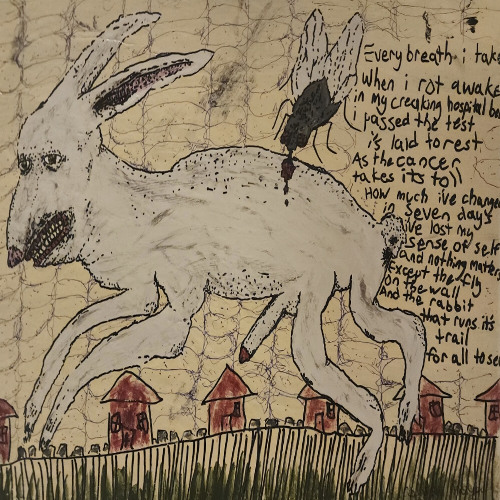 Every breath i take
When i rot awake
in my creaking hospital bed
i passed the test
is laid to rest
As the cancer
takes its toll
How much ive changed
in seven days
ive lost my
sense of self
and nothing matters
Except the fly
on the wall
And the rabbit
that runs its
trail
for all to see